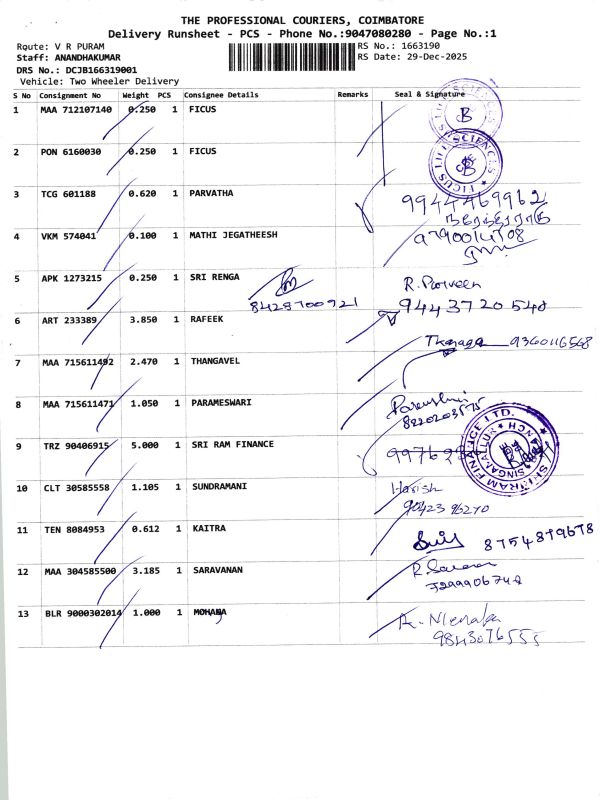 THE PROFESSIONAL COURIERS, COIMBATORE
Delivery Runsheet - PCS - Phone No.:9047080280 - Page No.:1
Route: V R PURAM
RS No.: 1663190
Staff: ANANDHAKUMAR
RS Date: 29-Dec-2025
DRS No.: DCJB166319001
Vehicle: Two Wheeler Delivery
S No Consignment No Weight PCS Consignee Details Remarks Seal & Signature
1 MAA 712107140 0.250 1 FICUS
2 PON 6160030 0.250 1 FICUS
FICUS LIFE SCIENCES
3 TCG 601188 0.620 1 PARVATHA 9944469962
4 VKM 574041 0.100 1 MATHI JEGATHEESH
5 APK 1273215 0.250 1 SRI RENGA 8428700921 R. Parveen
9443720540
6 ART 233389 3.850 1 RAFEEK
9360116568
7 MAA 715611492 2.470 1 THANGAVEL
8 MAA 715611471 1.050 1 PARAMESWARI
9 TRZ 90406915 5.000 1 SRI RAM FINANCE
SHRIRAM FINANCE LTD.
SINGANALLUR
10 CLT 30585558 1.105 1 SUNDRAMANI Harish
90423 96270
11 TEN 8084953 0.612 1 KAITRA 8754879678
12 MAA 304585500 3.185 1 SARAVANAN
13 BLR 9000302014 1.000 1 MOHANA
9843076555